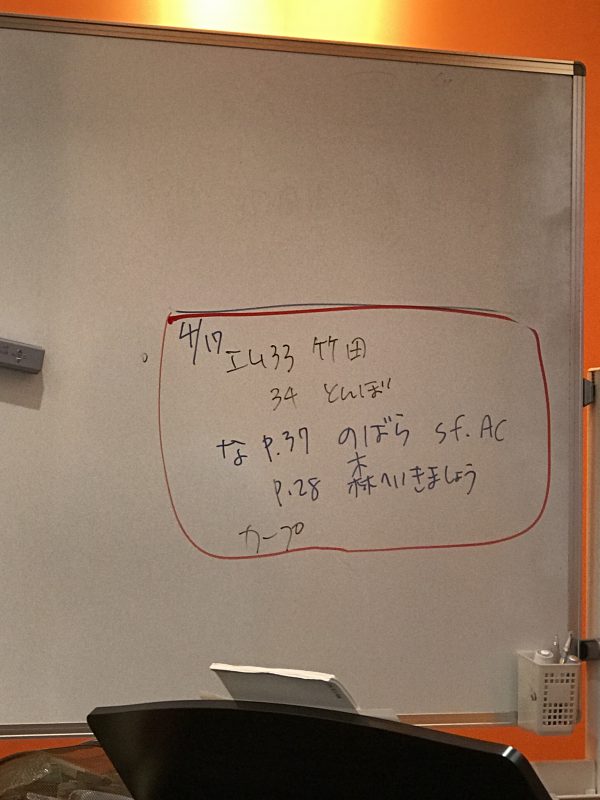 4/17 エム33 竹田
34 とんぼ
な P.37 のばら sf. AC
P.28 森へいきましょう
カープ